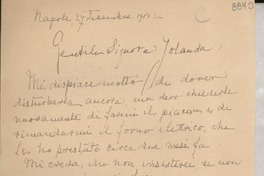 8870
C
Napoli, 27 dicembre 1952
Gentile Signora Yolanda,
Mi dispiace molto di dover
disturbarla ancora, ma devo chiederle
nuovamente di farmi il piacere di
rimandarmi il forno elettrico, che
Le ho prestato circa due mesi fa.
Mi creda, che non insisterei se non